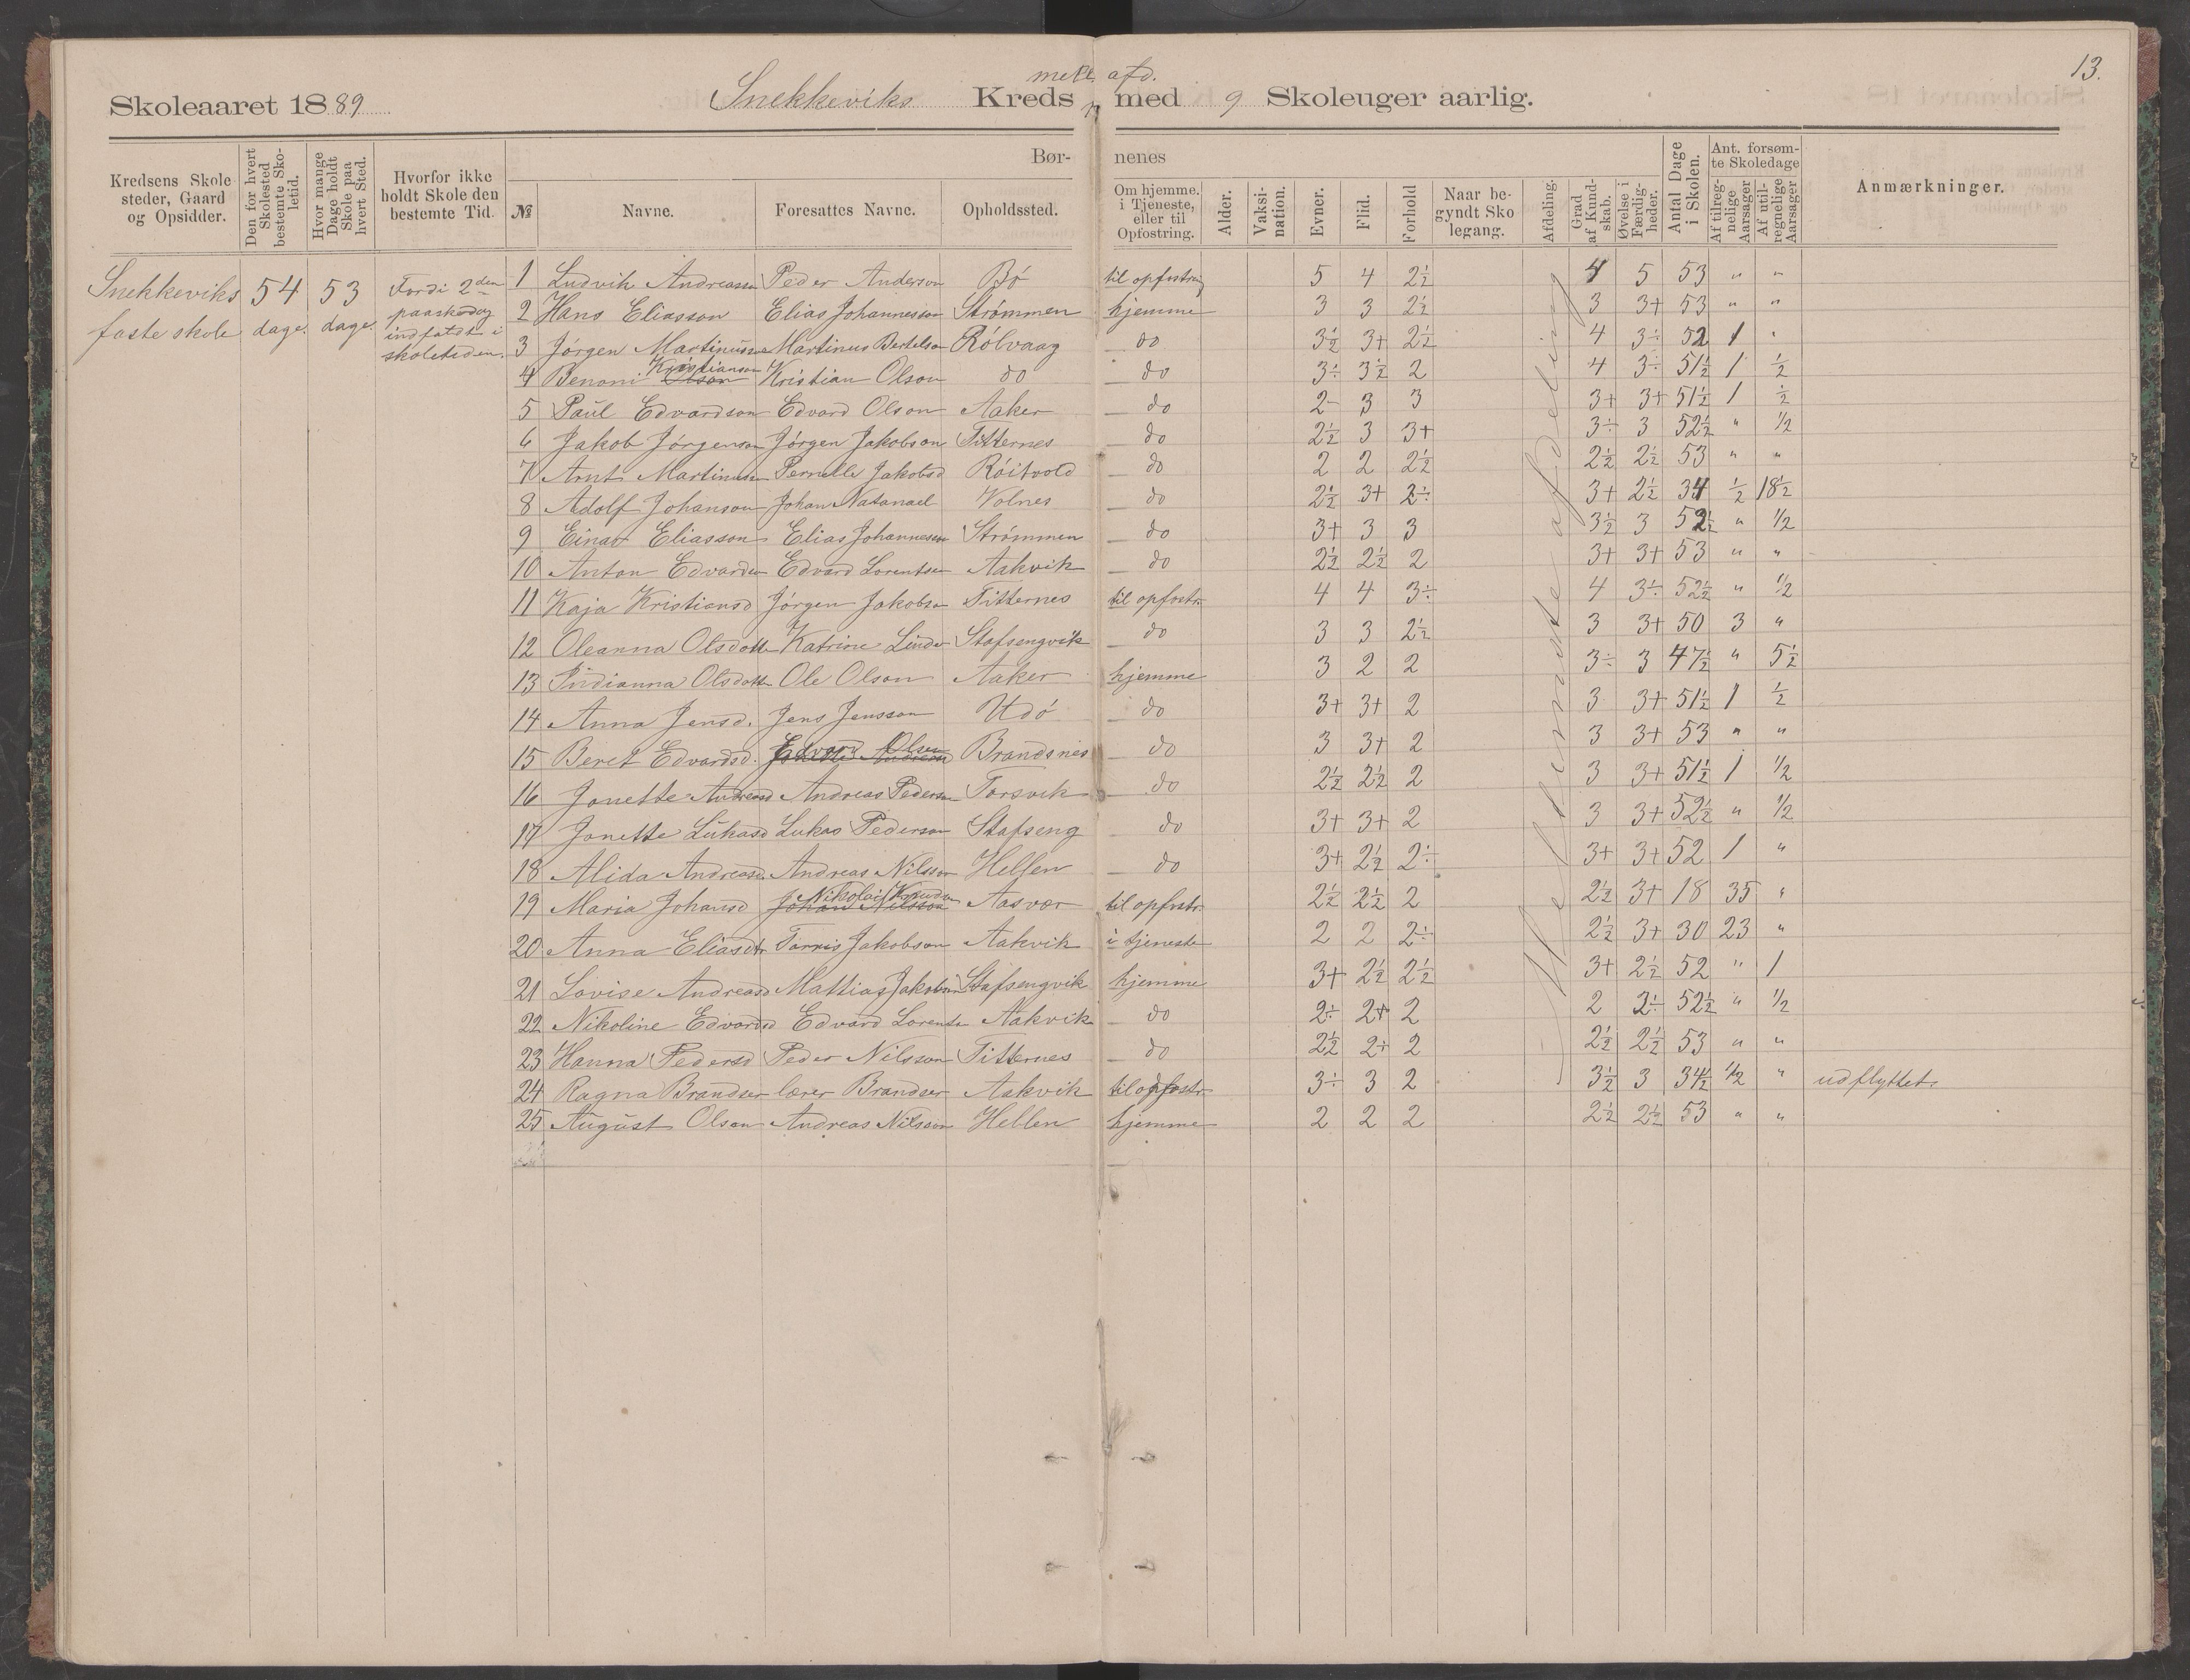 13.
melt. afd.
Skoleaaret 1889 Snekkeviks Kreds med 9 Skoleuger aarlig.
Kredsens Skolesteder, Gaard og Opsidder. Den for hvert Skolested bestemte Skoletid. Hvor mange Dage holdt Skole paa hvert Sted. Hvorfor ikke holdt Skole den bestemte Tid. Børnenes № Navne. Foresattes Navne. Opholdssted. Om hjemme. i Tjeneste, eller til Opfostring. Alder. Vaksination. Evner. Flid. Forhold Naar begyndt Skolegang. Afdeling. Grad af Kundskab. Øvelse i Færdigheder. Antal Dage i Skolen. Ant. forsømte Skoledage Af tilregnelige Aarsager Af utilregnelige Aarsager Anmærkninger.
Snekkeviks faste skole 54 dage. 53 dage. Fordi 2den paaskedag indfaldt i skoletiden.
1 Ludvik Andreassen Peder Anderson Bó til opfostring 5 4 2½ 4 5 53 " "
2 Hans Eliasson Elias Johannesson Strømmen hjemme 3 3 2½ 3 3+ 53 " "
3 Jórgen Martinussen Martinus Bertelson Rólvaag do 3½ 3+ 2½ 4 3÷ 52 1 "
4 Benoni Olson Kristianson Kristian Olson do do 3÷ 3½ 2 4 3÷ 51½ 1 ½
5 Paul Edvardson Edvard Olson Aaker do 2- 3 3 3+ 3+ 51½ 1 ½
6 Jakob Jórgenson Jórgen Jakobson Titternes do 2½ 3 3+ 3÷ 3 52½ " 1/2
7 Arnt Martinussen Pernelle Jakobsd Róitvold do 2 2 2½ 2½ 2½ 53 " "
8 Adolf Johanson Johan Natanael Volnes do 2½ 3+ 2÷ 3+ 2½ 34 ½ 18½
9 Einar Eliasson Elias Johannesen Strømmen do 3+ 3 3 3½ 3 52½ " 1/2
10 Anton Edvardsen Edvard Lorentsen Aakvik do 2½ 2½ 2 3+ 3+ 53 " "
11 Kaja Kristiansd Jórgen Jakobson Titternes til opfostr. 4 4 3÷ 4 3÷ 52½ " 1/2
12 Oleanna Olsdatt Katrine Linder Stafsengvik do 3 3 2½ 3 3+ 50 3 "
13 Indianna Olsdatt Ole Olson Aaker hjemme 3 2 2 3÷ 3 47½ " 5½
14 Anna Jensd. Jens Jensson Udó do 3+ 3+ 2 3 3+ 51½ 1 ½
15 Beret Edvardsd. Edvard Olsen Brandsnes do 3 3+ 2 3 3+ 53 " "
16 Jonette Andreasd Andreas Pederson Torsvik do 2½ 2½ 2 3 3+ 51½ 1 1/2
17 Jonette Lukasd Lukas Pederson Stafseng do 3+ 3+ 2 3 3+ 52½ " 1/2
18 Alida Andreasd Andreas Nilsson Hellen do 3+ 2½ 2÷ 3+ 3+ 52 1 "
19 Maria Johansd Johan Nilsson Nikolai Knudsen Aasvær til opfostr. 2½ 2½ 2 2½ 3+ 18 35 "
20 Anna Eliasdtr Tarris Jakobson Aakvik i tjeneste 2 2 2÷ 2½ 3+ 30 23 "
21 Lovise Andreasd Mattias Jakobson Stafsengvik hjemme 3+ 2½ 2½ 3+ 2½ 52 " 1
22 Nikoline Edvardsd Edvard Lorentsen Aakvik do 2÷ 2+ 2 2 3÷ 52½ " 1/2
23 Hanna Pedersd Peder Nilsson Titternes do 2½ 2+ 2 2½ 2½ 53 " "
24 Ragna Brandser lærer Brandser Aakvik til opfostr. 3÷ 3 2 3½ 3 34½ 1/2 " udflyttet.
25 August Olsen Andreas Nilsson Hellen hjemme 2 2 2 2½ 2½ 53 " "